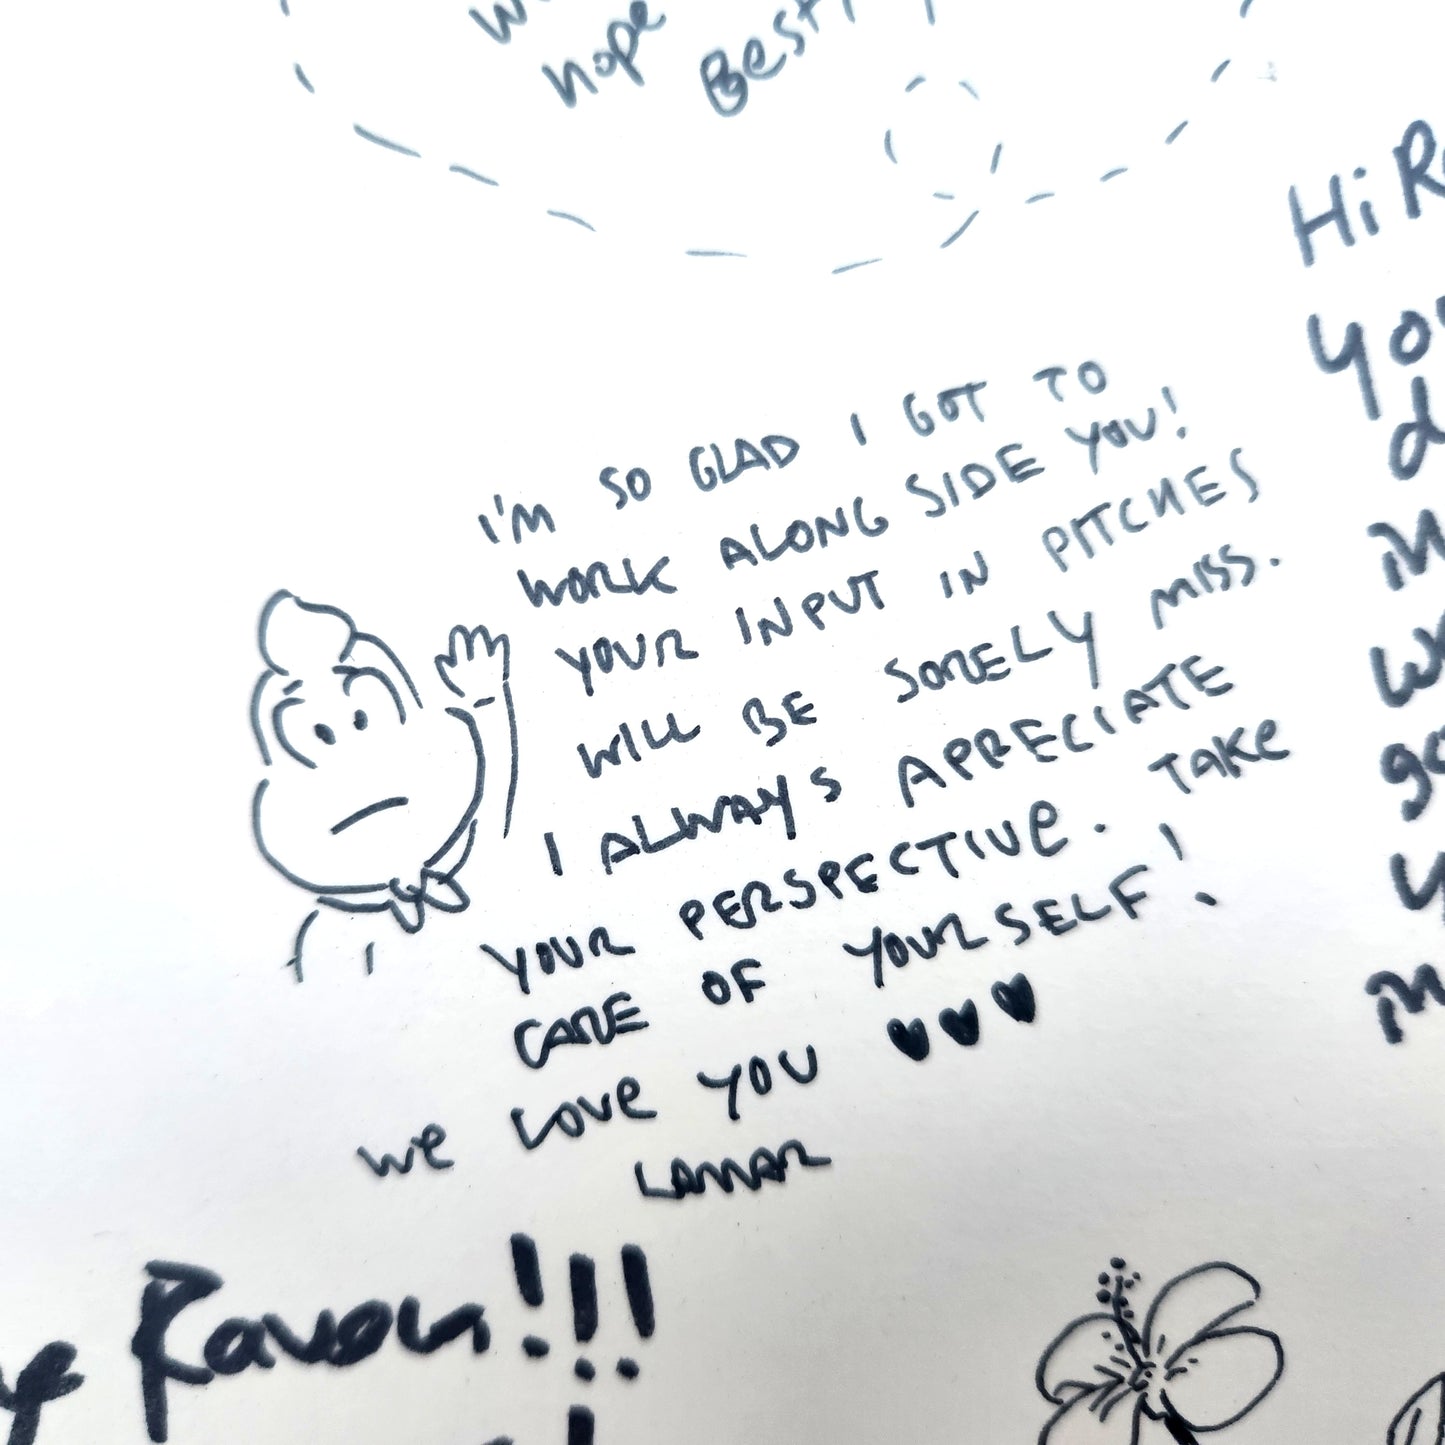 hope
Best
I'M SO GLAD I GOT TO
WORK ALONG SIDE YOU!
YOUR INPUT IN PITCHES
WILL BE SORELY MISS.
I ALWAYS APPRECIATE
YOUR PERSPECTIVE. TAKE
CARE OF YOURSELF!
WE LOVE YOU ♥♥♥
LAMAR
Hi
Raven!!!